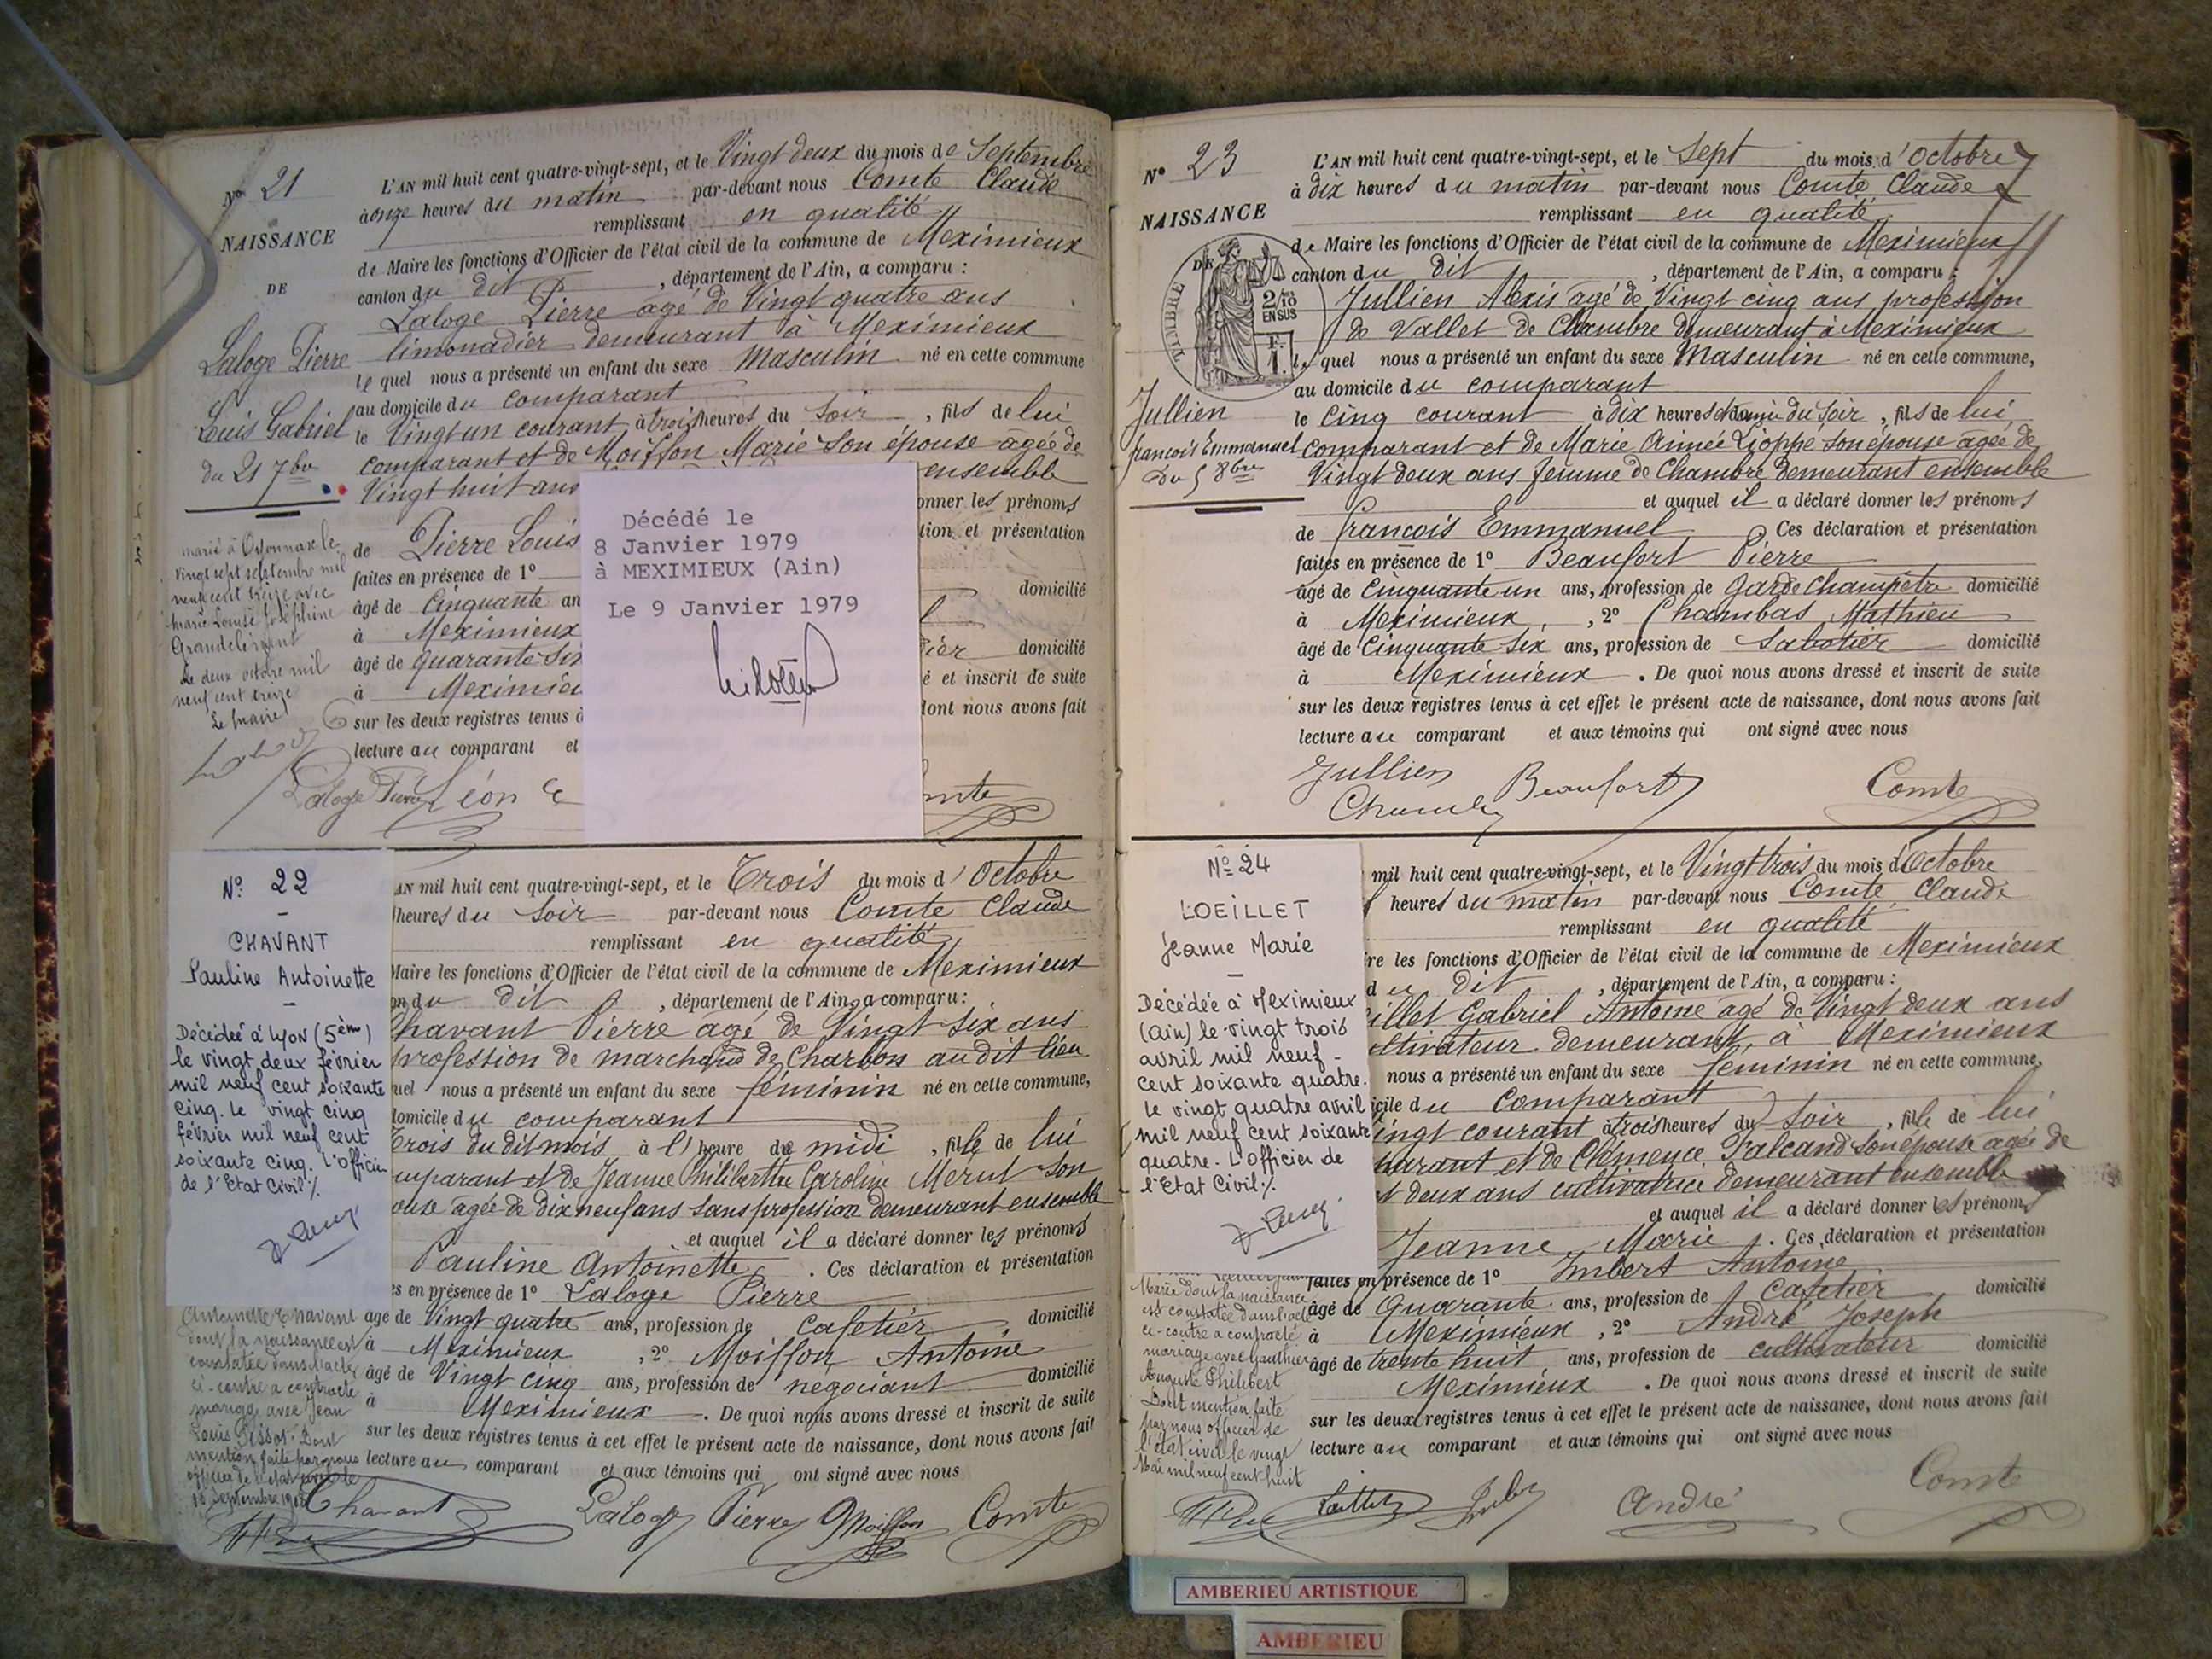 No 21
NAISSANCE
DE
Laloge Pierre
Louis Gabriel
du 21 7bre
L'AN mil huit cent quatre-vingt-sept, et le Vingt deux du mois de Septembre
à onze heures du matin par-devant nous Comte Claude
remplissant en qualité
de Maire les fonctions d'Officier de l'état civil de la commune de Meximieux
canton du dit , département de l'Ain, a comparu :
Laloge Pierre agé de Vingt quatre ans
limonadier demeurant à Meximieux
lequel nous a présenté un enfant du sexe Masculin né en cette commune
au domicile du comparant
le Vingt un courant à trois heures du soir , fils de lui
comparant et de Moiffon Marie son épouse agée de
Vingt huit ans ensemble
onner les prénoms
de Pierre Louis tion et présentation
faites en présence de 1o
âgé de Cinquante an domicilié
à Meximieux
âgé de quarante six ier domicilié
à Meximieu é et inscrit de suite
sur les deux registres tenus à dont nous avons fait
lecture au comparant et
Laloge Pierre Léon
marié à Oyonnax le
vingt sept septembre mil
neuf cent treize avec
Marie Louise Joséphine
Grandclément
Le deux octobre mil
neuf cent treize
Le maire
Décédé le
8 Janvier 1979
à MEXIMIEUX (Ain)
Le 9 Janvier 1979
No 22
CHAVANT
Pauline Antoinette
Décédée à Lyon (5ème)
le vingt deux février
mil neuf cent soixante
cinq. Le vingt cinq
février mil neuf cent
soixante cinq. L'officier
de l'Etat Civil ./.
AN mil huit cent quatre-vingt-sept, et le Trois du mois d'Octobre
heures du soir par-devant nous Comte Claude
remplissant en qualité
Maire les fonctions d'Officier de l'état civil de la commune de Meximieux
on du dit , département de l'Ain, a comparu :
Chavant Pierre agé de Vingt six ans
profession de marchand de Charbon audit lieu
uel nous a présenté un enfant du sexe féminin né en cette commune,
domicile du comparant
Trois du dit mois à l'heure de midi , fille de lui
comparant et de Jeanne Philiberthe Caroline Merut son
ouse agée de dix neuf ans sans profession demeurant ensemble
et auquel il a déclaré donner les prénoms
Pauline Antoinette . Ces déclaration et présentation
es en présence de 1o Laloge Pierre
age de Vingt quatre ans, profession de cafetier domicilié
à Meximieux , 2o Moiffon Antoine
âgé de Vingt cinq ans, profession de négociant domicilié
à Meximieux . De quoi nous avons dressé et inscrit de suite
sur les deux registres tenus à cet effet le présent acte de naissance, dont nous avons fait
lecture au comparant et aux témoins qui ont signé avec nous
Antoinette Chavant
dont la naissance est
constatée dans l'acte
ci-contre a contracté
mariage avec Jean
Louis Dont
mention faite par nous
officier de l'état civil le
Septembre
Chavant Laloge Pierre Moiffon Comte
No 23
NAISSANCE
DE
TIMBRE
2/10
EN SUS
Jullien
françois Emmanuel
Du 5 8bre
L'AN mil huit cent quatre-vingt-sept, et le Sept du mois d'Octobre
à dix heures du matin par-devant nous Comte Claude
remplissant en qualité
de Maire les fonctions d'Officier de l'état civil de la commune de Meximieux
canton du dit , département de l'Ain, a comparu :
Jullien Alexis agé de Vingt cinq ans profession
de Vallet de Chambre demeurant à Meximieux
lequel nous a présenté un enfant du sexe Masculin né en cette commune,
au domicile du comparant
le Cinq courant à dix heures et demie du soir , fils de lui
comparant et de Marie Aimée Lioppe son épouse agée de
Vingt deux ans femme de Chambre demeurant ensemble
et auquel il a déclaré donner les prénoms
de françois Emmanuel Ces déclaration et présentation
faites en présence de 1o Beaufort Pierre
âgé de Cinquante un ans, profession de Garde champêtre domicilié
à Meximieux , 2o Chambas Mathieu
âgé de Cinquante six ans, profession de Sabotier domicilié
à Meximieux . De quoi nous avons dressé et inscrit de suite
sur les deux registres tenus à cet effet le présent acte de naissance, dont nous avons fait
lecture au comparant et aux témoins qui ont signé avec nous
Jullien Beaufort Comte
No 24
LOEILLET
Jeanne Marie
Décédée à Meximieux
(Ain) le vingt trois
avril mil neuf-
cent soixante quatre.
Le vingt quatre avril
mil neuf cent soixante
quatre. L'officier de
l'Etat Civil ./.
mil huit cent quatre-vingt-sept, et le Vingt trois du mois d'Octobre
heures du matin par-devant nous Comte Claude
remplissant en qualité
re les fonctions d'Officier de l'état civil de la commune de Meximieux
du dit , département de l'Ain, a comparu :
illet Gabriel Antoine agé de Vingt deux ans
ltivateur demeurant à Meximieux
nous a présenté un enfant du sexe féminin né en cette commune,
icile du comparant
ingt courant à trois heures du soir , fille de lui
parant et de Clémence Falcand son épouse agée de
t deux ans cultivatrice demeurant ensemble
et auquel il a déclaré donner les prénoms
Jeanne Marie . Ces déclaration et présentation
faites en présence de 1o Imbert Antoine
âgé de Quarante ans, profession de Cafetier domicilié
à Meximieux , 2o André Joseph
âgé de trente huit ans, profession de cultivateur domicilié
Meximieux . De quoi nous avons dressé et inscrit de suite
sur les deux registres tenus à cet effet le présent acte de naissance, dont nous avons fait
lecture au comparant et aux témoins qui ont signé avec nous
Marie dont la naissance
est constatée dans l'acte
ci-contre a contracté
mariage avec Gauthier
Auguste Philibert
Dont mention faite
par nous officier de
l'état civil le vingt
Mai mil neuf cent huit
André Comte
AMBERIEU ARTISTIQUE
AMBERIEU